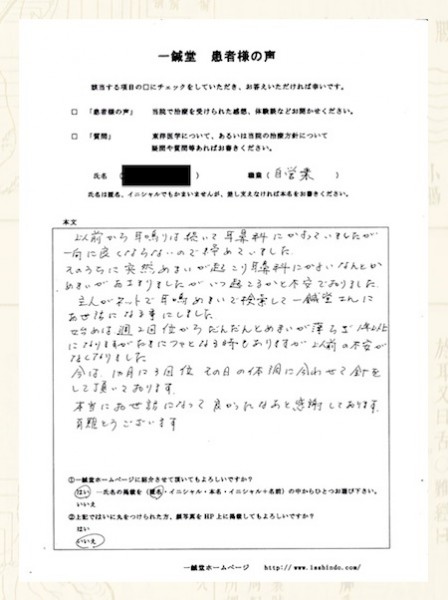 一鍼堂 患者様の声
該当する項目の口にチェックをしていただき、お答えいただければ幸いです。
□ 「患者様の声」 当院で治療を受けられた感想、体験談などお聞かせください。
□ 「質問」 東洋医学について、あるいは当院の治療方針について
疑問や質問等あればお書きください。
氏名 職業(自営業)
氏名は匿名、イニシャルでもかまいませんが、差し支えなければ本名をお書きください。
本文
以前から耳鳴りは続いて耳鼻科にかよっていましたが
一向に良くならないので諦めていました。
そのうちに突然めまいが起こり耳鼻科にかよいなんとか
めまいがおさまりましたがいつ起こるかと不安でおりました。
主人がネットで耳鳴めまいで検索して一鍼堂さんに
お世話になる事にしました。
始めは週2回位からだんだんとめまいが薄らぎ
になりますがたまにフッとなる時もありますが以前の不安が
なくなりました。
今は、1か月に3回位 その日の体調に合わせて針を
して頂いております。
本当にお世話になって良かったなあと感謝しております。
有難とうございます
①一鍼堂ホームページに紹介させて頂いてもよろしいですか?
はい →氏名の掲載を(匿名・イニシャル・本名・イニシャル+名前)の中からひとつお選び下さい。
いいえ
②上記ではいに丸をつけられた方、顔写真をHP上に掲載してもよろしいですか?
はい
いいえ
一鍼堂ホームページ http://www.isshindo.com/